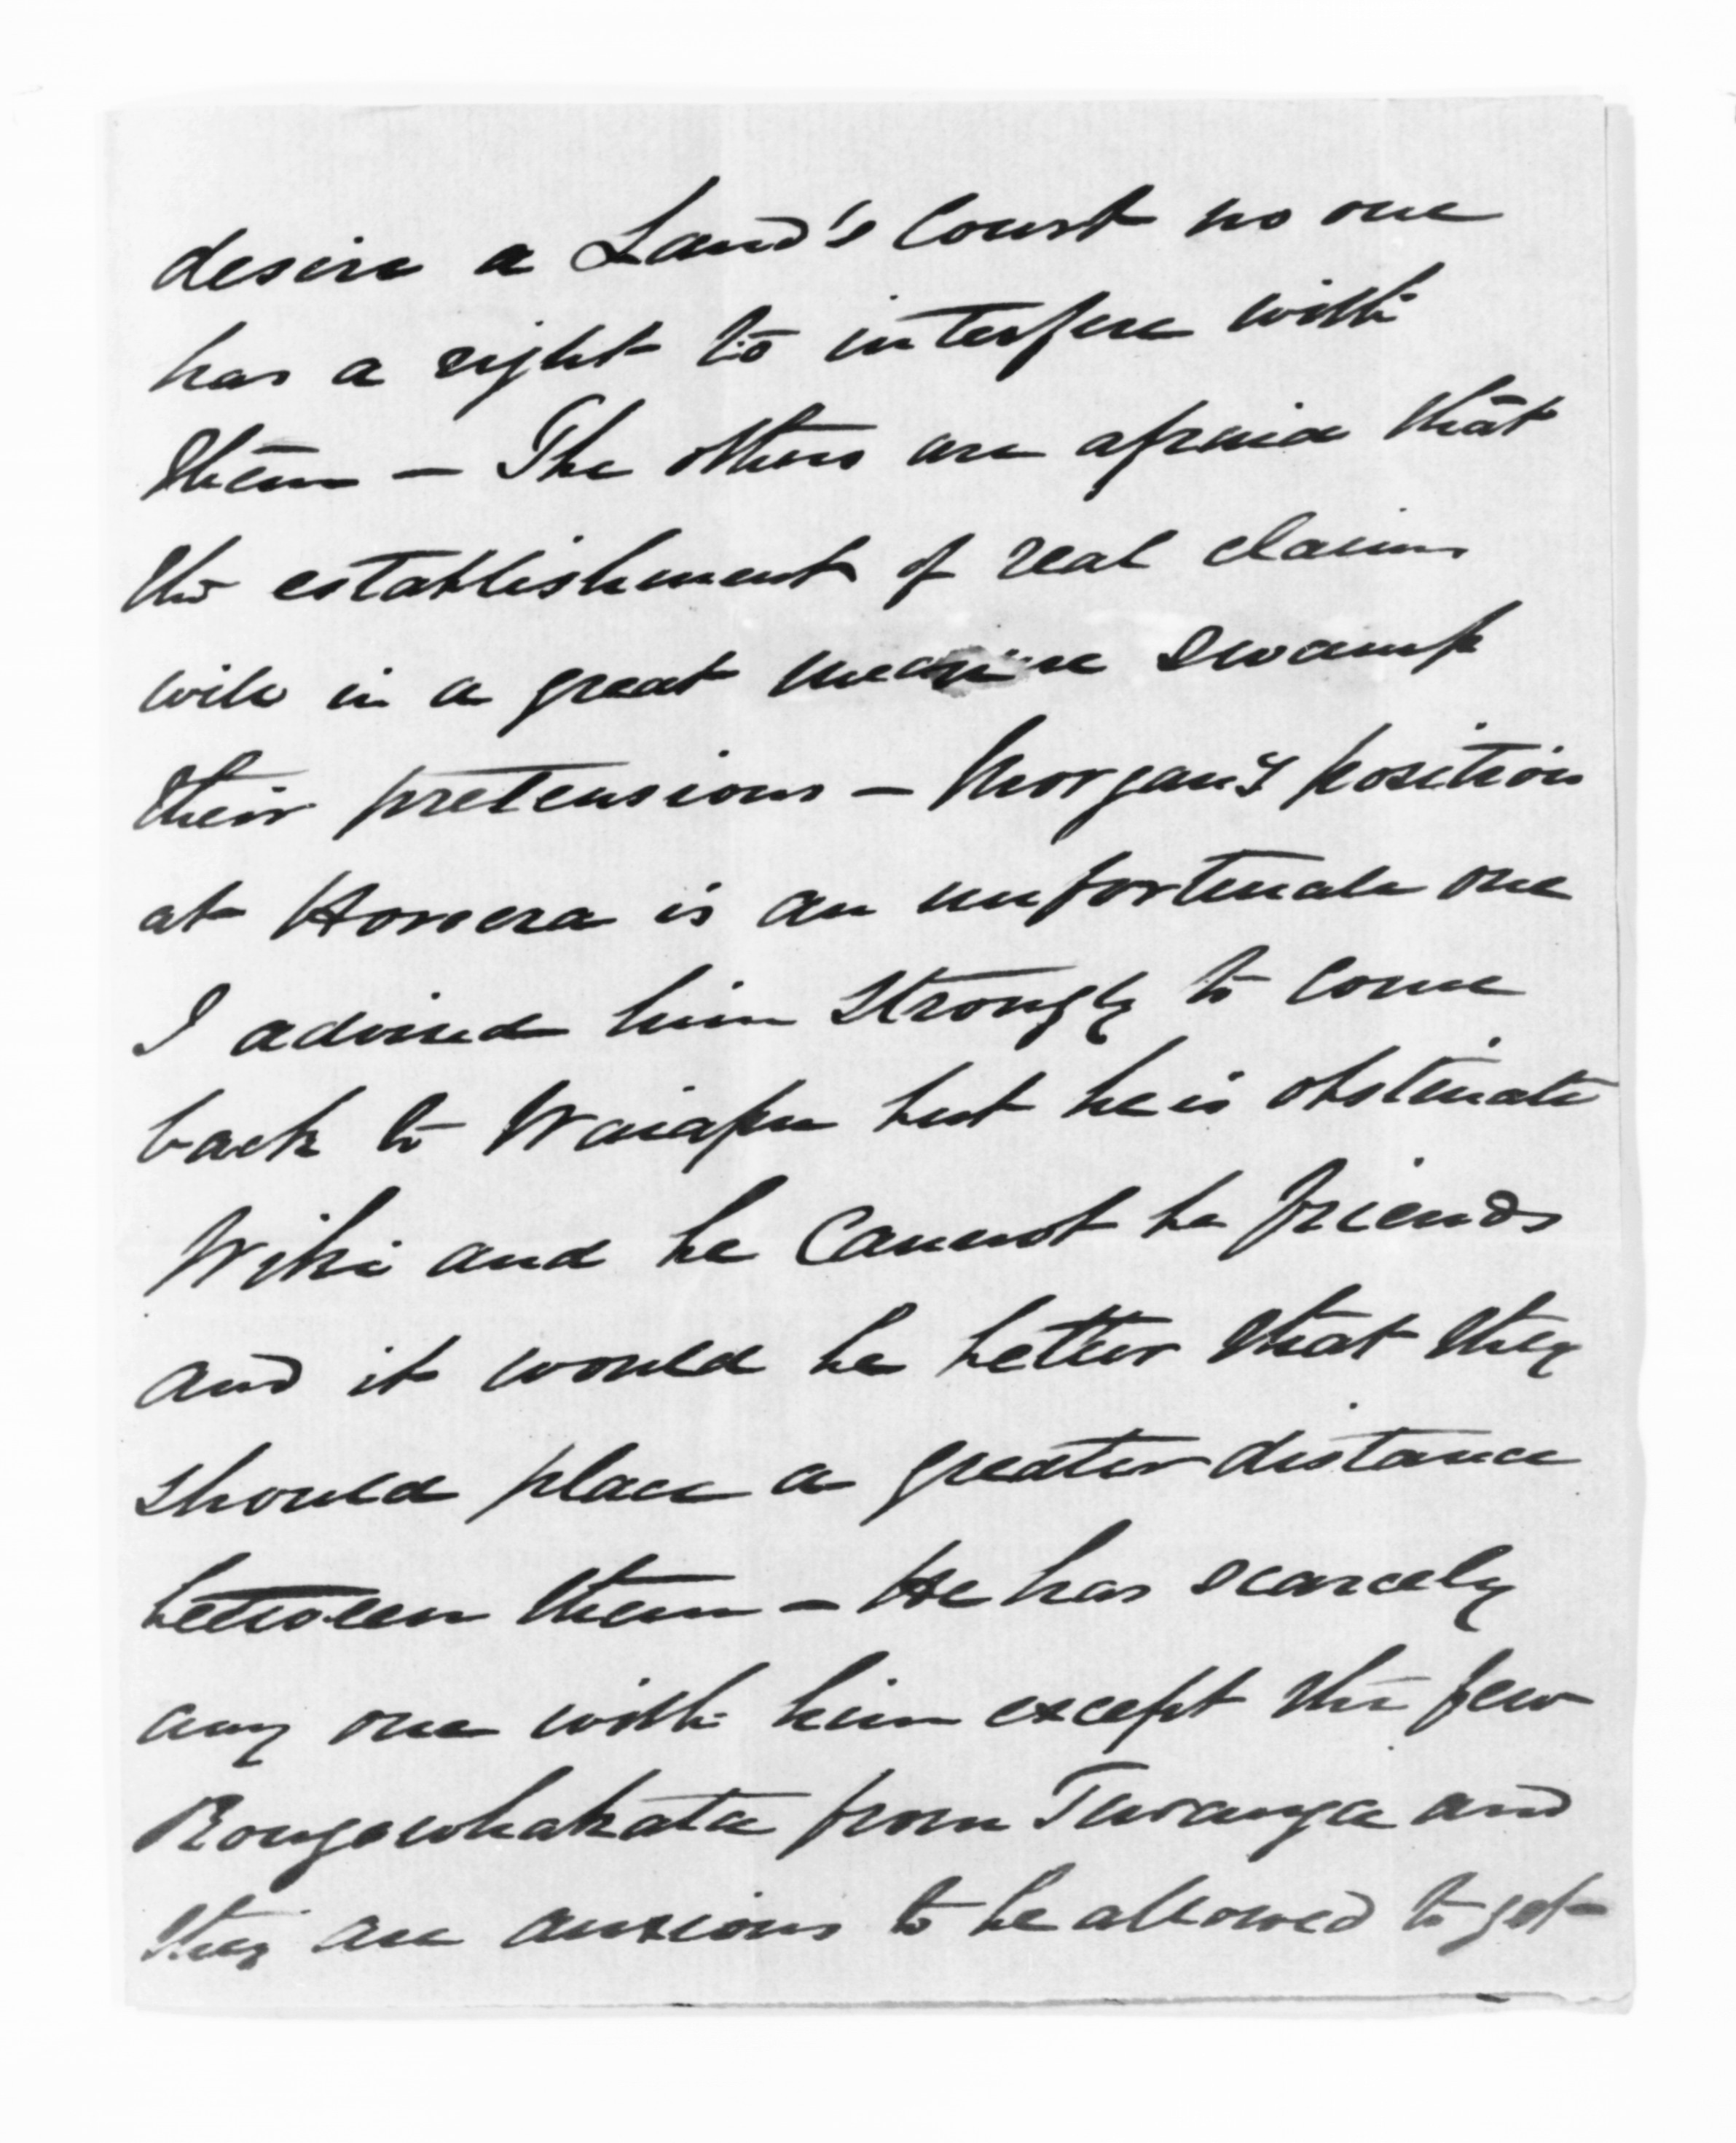 desire a Land's Court no one
has a right to interfere with
them — The others are afraid that
the establishment of real claims
will in a great measure swamp
their pretensions — Morgan's position
at Horoera is an unfortunate one
I advised him strongly to come
back to Waiapu but he is obstinate
Wiki and he cannot be friends
and it would be better that they
should place a greater distance
between them — He has scarcely
any one with him except the few
Rongowhakata from Turanga and
they are anxious to be allowed to get